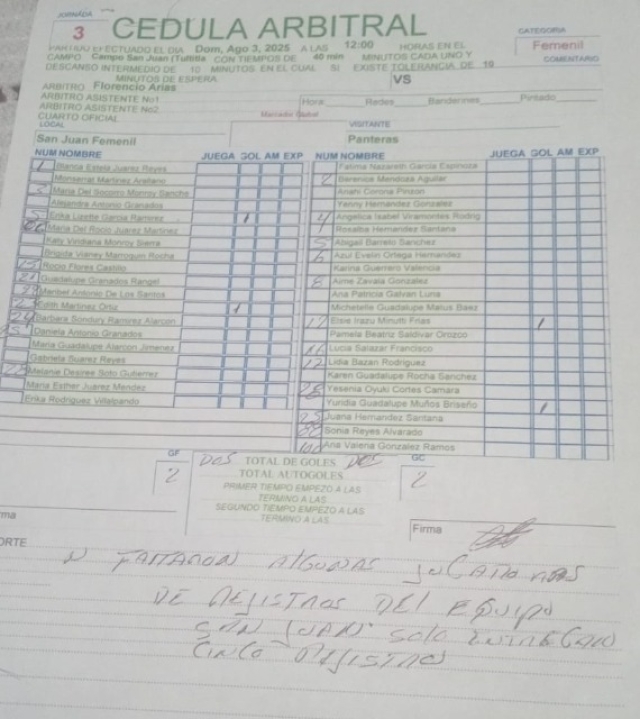 JORNADA
3
CEDULA ARBITRAL
CATEGORIA
Femenil
COMENTARIO
PARTIDO EFECTUADO EL DIA Dom, Ago 3, 2025 A LAS 12:00 HORAS EN EL
CAMPO Campo San Juan (Tultitla CON TIEMPOS DE 40 min MINUTOS CADA UNO Y
DESCANSO INTERMEDIO DE 10 MINUTOS EN EL CUAL SI EXISTE TOLERANCIA DE 10
MINUTOS DE ESPERA
VS
ARBITRO Florencio Arias
ARBITRO ASISTENTE No1
ARBITRO ASISTENTE No2
CUARTO OFICIAL
Hora Redes Banderines Pintado
Marcador Global
LOCAL
San Juan Femenil
NUM NOMBRE JUEGA GOL AM EXP
1 Blanca Estela Juarez Reyes
Monserrat Martinez Arellano
3 Maria Del Socorro Monroy Sanche
Alejandra Antonio Granados
5 Erika Lizette Garcia Ramirez
Maria Del Rocio Juarez Martinez
Katy Viridiana Monroy Sierra
Brigida Vianey Marroquin Rocha
Rocio Flores Castillo
Guadalupe Granados Rangel
Maribel Antonio De Los Santos
Edith Martinez Ortiz
Barbara Sondury Ramirez Alarcon
Daniela Antonio Granados
Maria Guadalupe Alarcon Jimenez
Gabriela Suarez Reyes
Melanie Desiree Soto Gutierrez
Maria Esther Juarez Mendez
Erika Rodriguez Villalpando
VISITANTE
Panteras
NUM NOMBRE JUEGA GOL AM EXP
Fatima Nazareth Garcia Espinoza
2 Berenice Mendoza Aguilar
Anahi Corona Pinzon
Yenny Hernandez Gonzalez
4 Angelica Isabel Viramontes Rodrig
Rosalba Hernandez Santana
5 Abigail Barreto Sanchez
6 Azul Evelin Ortega Hernandez
Karina Guerrero Valencia
8 Aime Zavala Gonzalez
Ana Patricia Galvan Luna
Michetelle Guadalupe Matus Baez
Elsie Irazu Minutti Frias
Pamela Beatriz Saldivar Orozco
Lucia Salazar Francisco
Lidia Bazan Rodriguez
Karen Guadalupe Rocha Sanchez
Yesenia Oyuki Cortes Camara
Yuridia Guadalupe Muños Briseño
Juana Hernandez Santana
Sonia Reyes Alvarado
Ana Valena Gonzalez Ramos
GF
2
DOS TOTAL DE GOLES DOS
TOTAL AUTOGOLES
PRIMER TIEMPO EMPEZO A LAS
TERMINO A LAS
SEGUNDO TIEMPO EMPEZO A LAS
TERMINO A LAS
GC
2
ma
Firma
ORTE
FALTARON ALGUNAS
DE REJISTROS DEL EQUIPO
SAN JUAN SOLO
CINCO REJISTROS